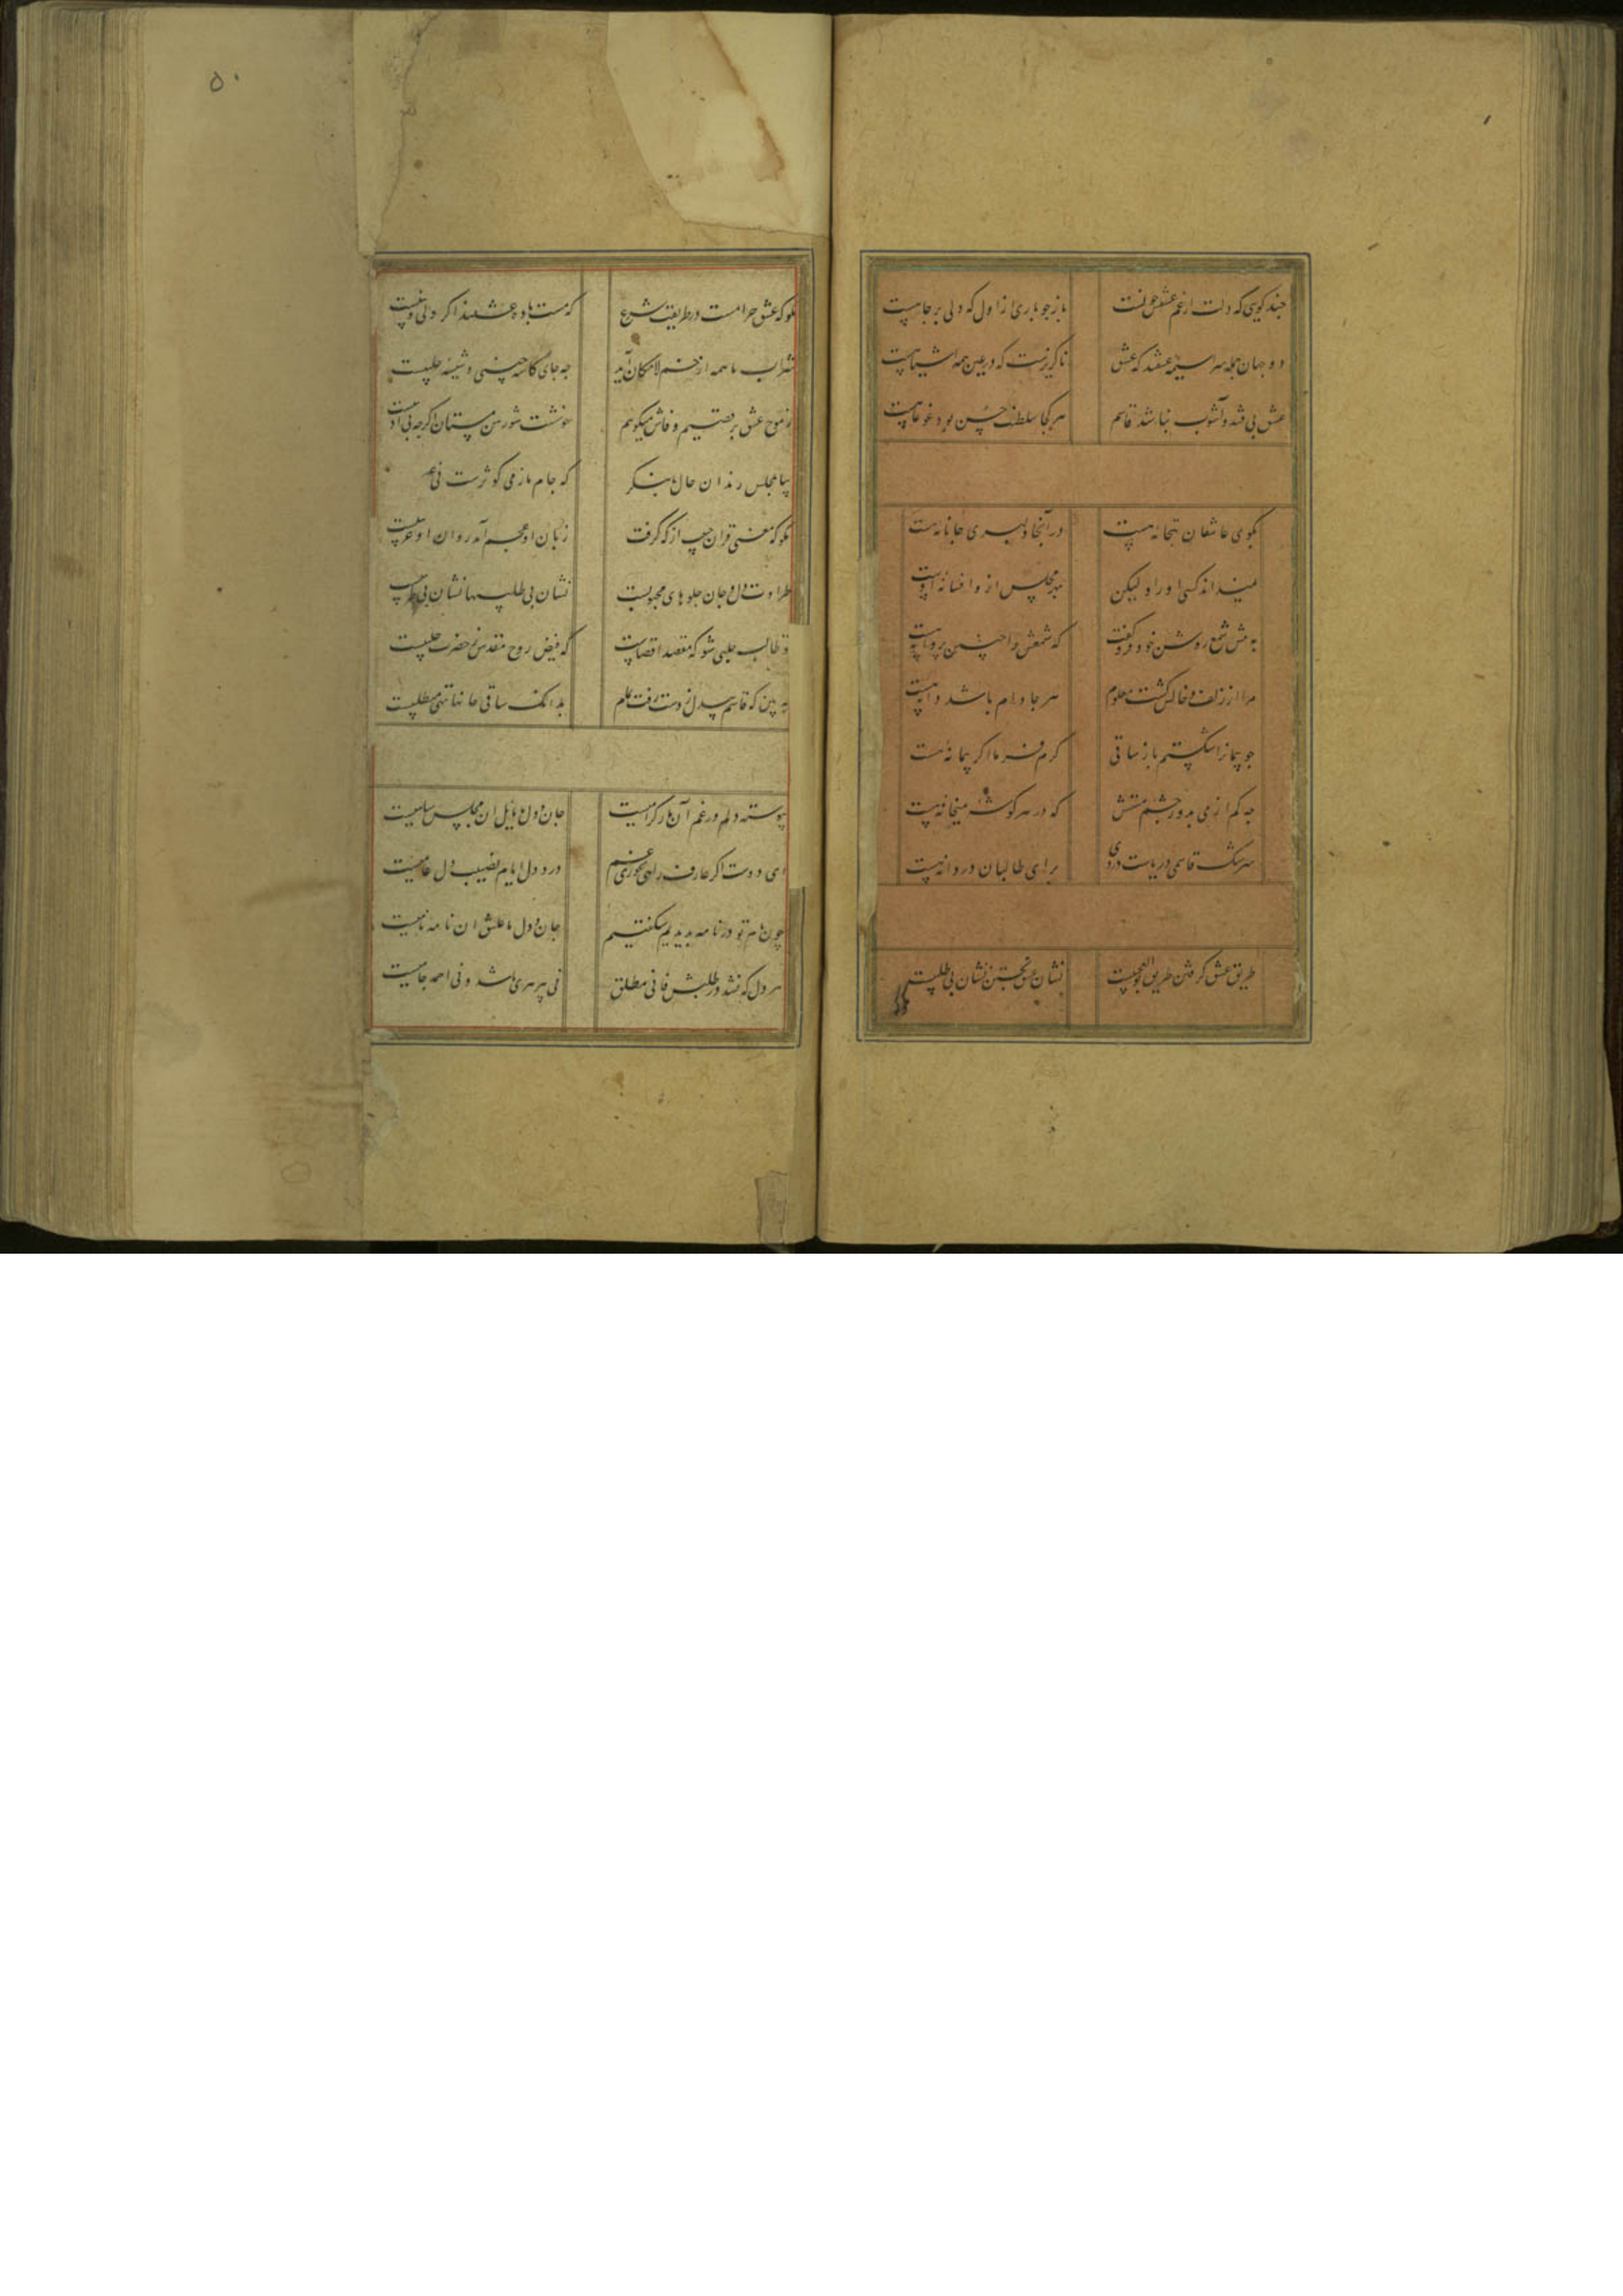 ۵۰
چند کویی که دلت از غم عشق خونست بازجو باری از اول که دلی برجا هست
دو جهان جمله سراسیمه عشقند که عشق ناکزیرست که در عین همه اشیا هست
عشق بی فتنه و آشوب نباشد قاسم هر کجا سلطنت حسن بود غوغا هست
بکوی عاشقان بتخانه هست در آنجا دلبری جانانه هست
نمیداند کسی او را و لیکن بهر مجلس ازو افسانه هست
به پیش شمع روشن خود فرو رفت که شمعش را چنین پروانه هست
مرا از زلف و خالش کشت معلوم هر جا دام باشد دانه هست
چو پیمانرا شکستم باز ساقی کرم فرما اکر پیمانه هست
چه کم از می بدور چشم مستش که در هر کوشه میخانه هست
سرشک قاسمی دریاست دردی برای طالبان دردانه هست
طریق عشق کرفتن طریق بوالعجبیست نشان عشق نجستن نشان بی طلبیست
مکو که عشق حرامست در طریقت شرع که مست باده عشقند اکر
شراب ما همه از خم لامکان آید چه جای کاسه چینی و شیشه حلبیست
ز موج عشق برقصیم و فاش میکویم خوشست شورش مستان اکرچه بی ادبیست
بیا بمجلس رندان حال ما بنکر که جام ما ز می کوثرست نی
مکو که معنی قران حبیب از که کرفت زبان او عجم آمد روان او عربیست
طراوت دل و جان جلوهای محبوبست نشان بی طلبیها نشان بی طربیست
تو طالب حلبی شو که مقصد اقصاست که فیض روح مقدس ز حضرت حلبیست
به بین که قاسم بیدل ز دست رفت تمام بدانک ساقی جانها تنی مطلبیست
پیوسته دلم در غم آن یار کرامیست جان و دل ما مایل ان مجلس سامیست
ای دوست اکر عارف راهی مخوری غم درد دل ایام نصیب دل عامیست
چون نام تو در نامه بدیدیم شکفتیم جان و دل ما عاشق ان نامه نامیست
هر دل که نشد در طلبش فانی مطلق نی پیر هری باشد و نی احمد جامیست